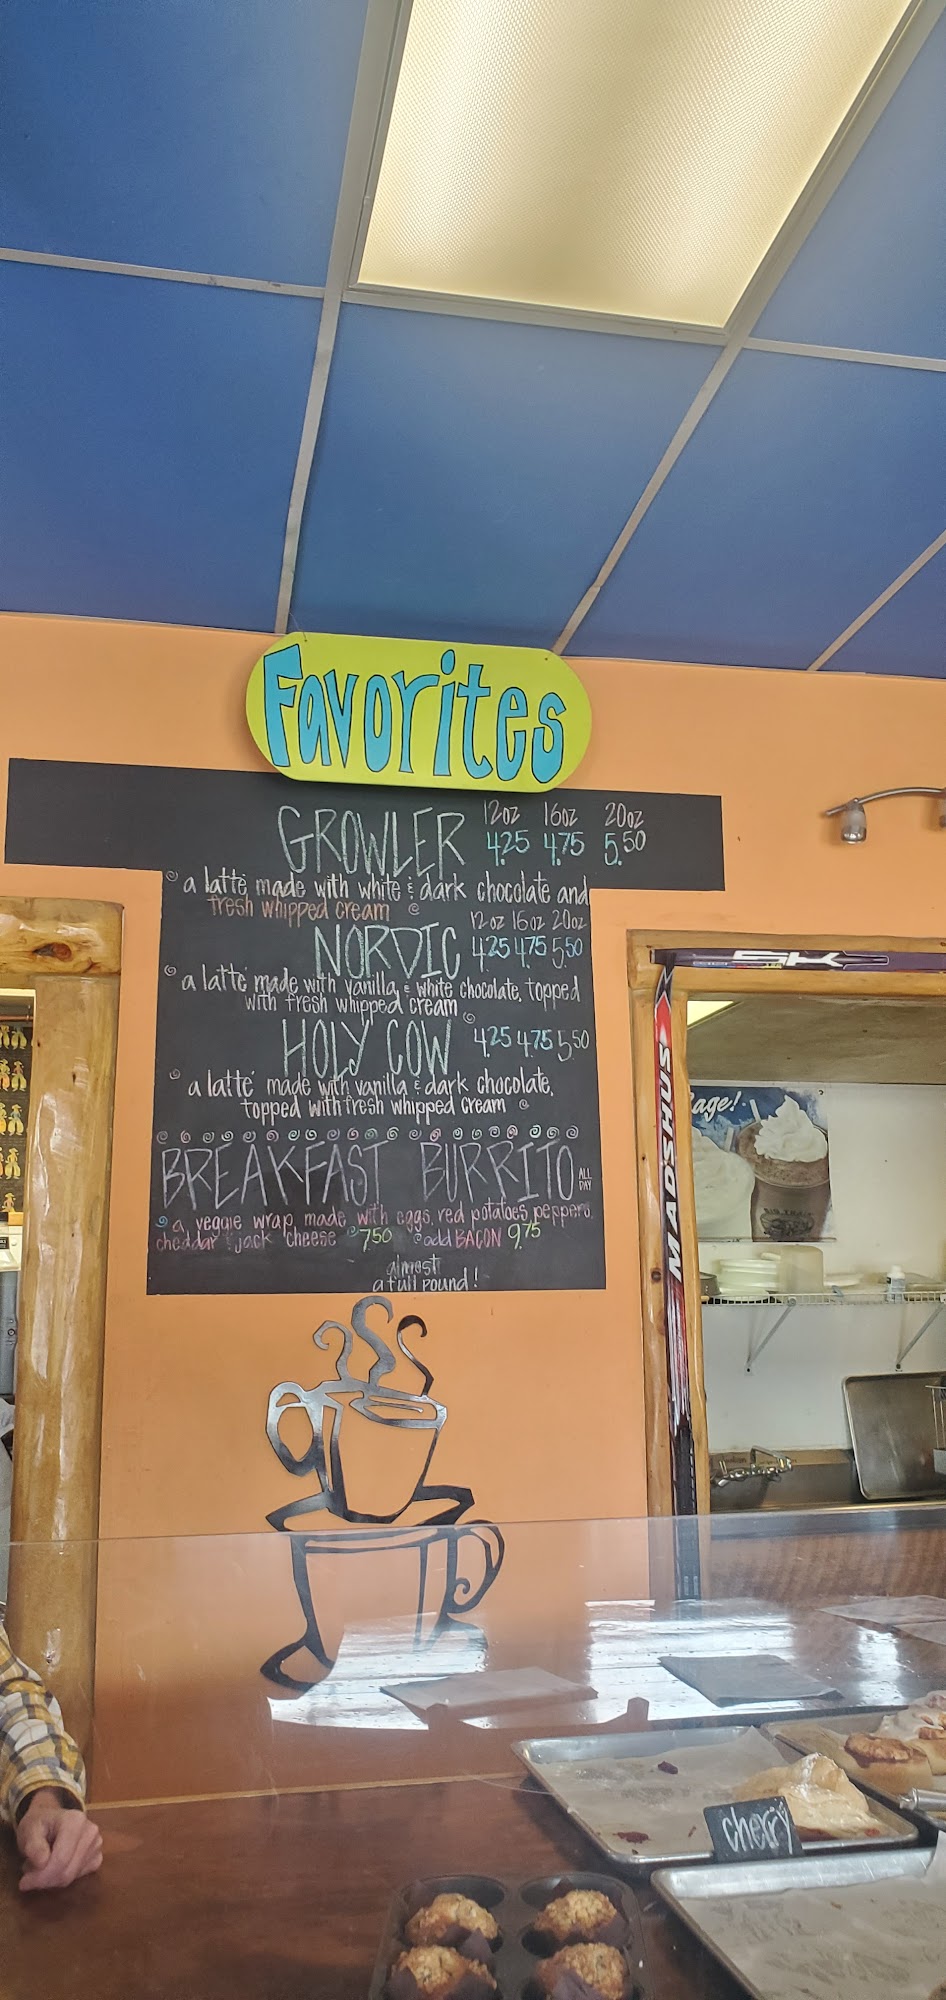 Favorites
GROWLER 12oz 16oz 20oz
4.25 4.75 5.50
a latté made with white & dark chocolate and
fresh whipped cream
12oz 16oz 20oz
NORDIC 4.25 4.75 5.50
a latte made with vanilla & white chocolate, topped
with fresh whipped cream
HOLY COW 4.25 4.75 5.50
a latte' made with vanilla & dark chocolate,
topped with fresh whipped cream
BREAKFAST BURRITO ALL
DAY
a veggie wrap made with eggs, red potatoes peppers,
cheddar jack cheese 7.50 add BACON 9.75
almost
a full pound!
MADSHUS
age!
cherry